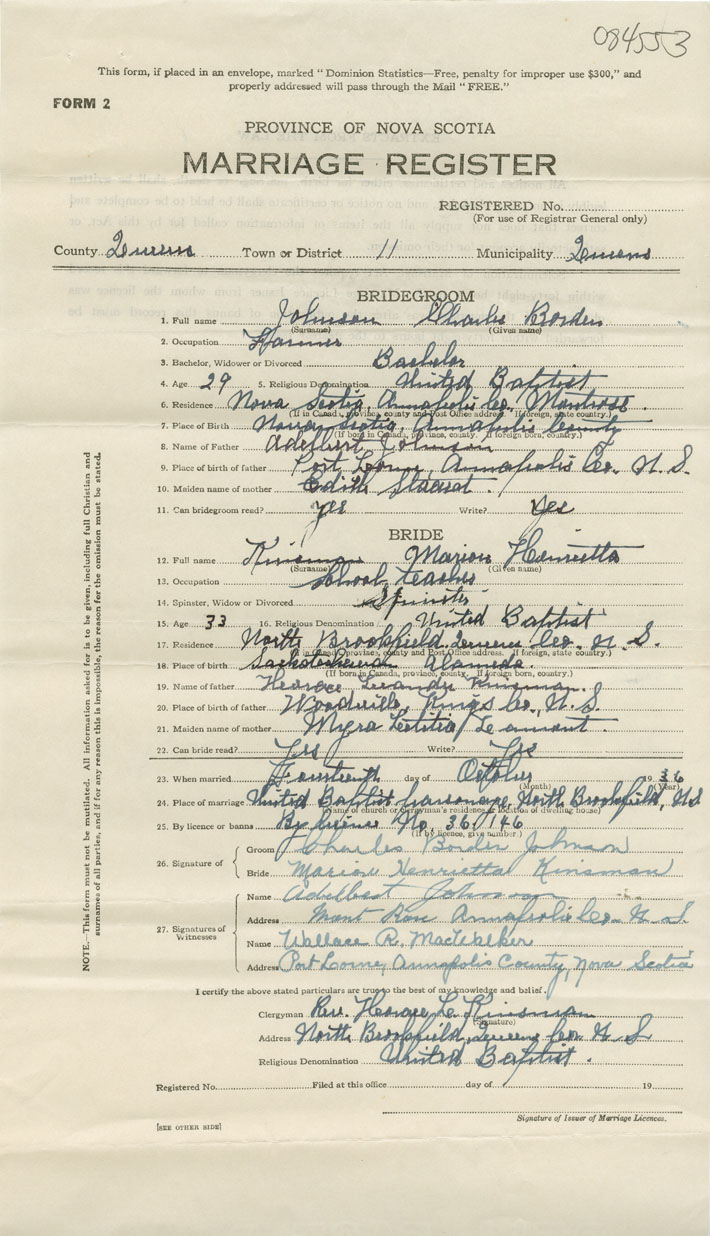 084553
This form, if placed in an envelope, marked "Dominion Statistics—Free, penalty for improper use $300," and
properly addressed will pass through the Mail "FREE."
FORM 2
PROVINCE OF NOVA SCOTIA
MARRIAGE REGISTER
REGISTERED No.
(For use of Registrar General only)
County Queens Town or District 11 Municipality Queens
BRIDEGROOM
1. Full name Johnson Charles Borden
(Surname) (Given name)
2. Occupation Farmer
3. Bachelor, Widower or Divorced Bachelor
4. Age 29 5. Religious Denomination United Baptist
6. Residence Nova Scotia, Annapolis Co. Montrose.
(If in Canada, province, county and Post Office address. If foreign, state country.)
7. Place of Birth Nova Scotia, Annapolis County
(If born in Canada, province, county. If foreign born, country.)
8. Name of Father Adelbert Johnson
9. Place of birth of father Port Lorne, Annapolis Co. N.S.
10. Maiden name of mother Edith
11. Can bridegroom read? Yes Write? Yes
BRIDE
12. Full name Kinsman Marion Henrietta
(Surname) (Given name)
13. Occupation School teacher
14. Spinster, Widow or Divorced Spinster
15. Age 33 16. Religious Denomination United Baptist
17. Residence North Brookfield, Queens Co. N.S.
(If in Canada, province, county and Post Office address. If foreign, state country.)
18. Place of birth Saskatchewan Alameda.
(If born in Canada, province, county. If foreign born, country.)
19. Name of father Horace Leander Kinsman.
20. Place of birth of father Woodville, Kings Co. N.S.
21. Maiden name of mother Myra Letitia Lamont.
22. Can bride read? Yes Write? Yes
23. When married Fourteenth day of October 1936
(Month) (Year)
24. Place of marriage United Baptist parsonage, North Brookfield, N.S
(Name of church or clergyman's residence or location of dwelling house)
25. By licence or banns By licence No. 36,146
(If by licence, give number.)
26. Signature of Groom Charles Borden Johnson
Bride Marion Henrietta Kinsman
27. Signatures of Witnesses Name Adelbert Johnson
Address Mont Rose Annapolis Co. N.S.
Name Wallace R. MacWalker
Address Port Lorne, Annapolis County, Nova Scotia
I certify the above stated particulars are true to the best of my knowledge and belief.
Clergyman Rev. Horace L. Kinsman
(Signature)
Address North Brookfield, Queens Co. N.S
Religious Denomination United Baptist.
Registered No. Filed at this office day of 19
Signature of Issuer of Marriage Licences.
[SEE OTHER SIDE]
NOTE.—This form must not be mutilated. All information asked for is to be given, including full Christian and
surnames of all parties, and if for any reason this is impossible, the reason for the omission must be stated.